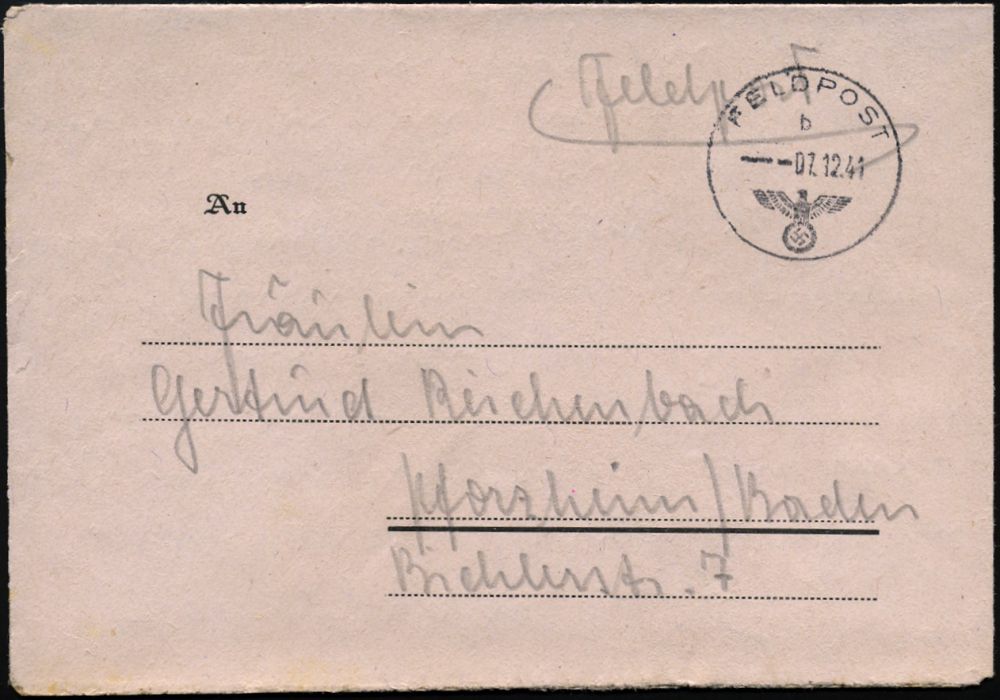 Feldpost
FELDPOST
b
-07.12.41
An
Fräulein
Gertrud Reichenbach
Pforzheim/Baden
Bichlerstr. 7